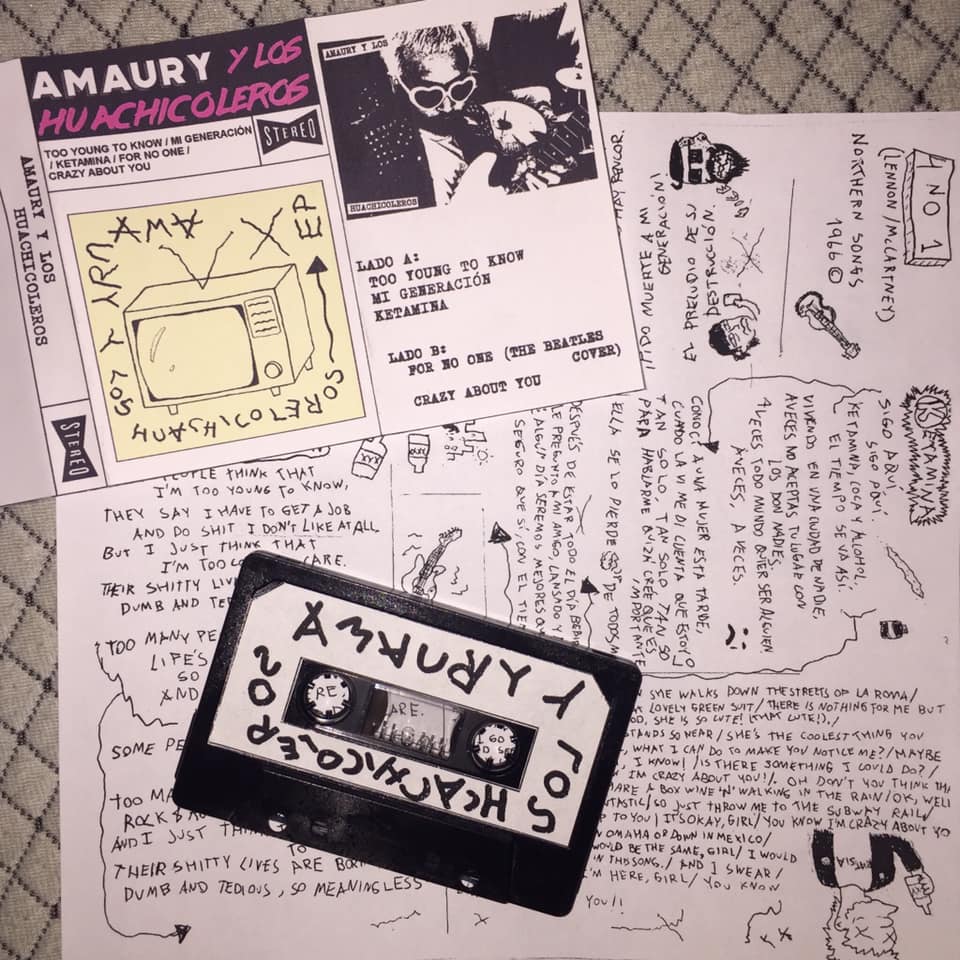 AMAURY Y LOS
HUACHICOLEROS
TOO YOUNG TO KNOW / MI GENERACIÓN
/ KETAMINA / FOR NO ONE /
CRAZY ABOUT YOU
STEREO
AMAURY Y LOS HUACHICOLEROS
EP
AMAURY Y LOS
HUACHICOLEROS
STEREO
AMAURY Y LOS
HUACHICOLEROS
LADO A:
TOO YOUNG TO KNOW
MI GENERACIÓN
KETAMINA
LADO B:
FOR NO ONE (THE BEATLES
COVER)
CRAZY ABOUT YOU
4 NO 1
(LENNON/McCARTNEY)
NORTHERN SONGS
1966 ©
HAY RENCOR.
MUERTE A MI
GENERACIÓN!
EL PRELUDIO DE SU
DESTRUCCIÓN.
KETAMINA
SIGO AQUÍ.
SIGO AQUÍ.
KETAMINA, COCA Y ALCOHOL.
EL TIEMPO SE VA ASÍ.
VIVIENDO EN UNA CIUDAD DE NADIE,
AVECES NO ACEPTAS TU LUGAR CON
LOS DON NADIES.
AVECES TODO MUNDO QUIER SER ALGUIEN
AVECES, A VECES.
CONOCÍ A UNA MUJER ESTA TARDE,
CUANDO LA VI ME DI CUENTA QUE ESTOY
TAN SOLO, TAN SOLO, TAN SOLO
PARA HABLARME QUIZÁ CREE QUE ES
IMPORTANTE
ELLA SE LO PIERDE
DE TODOS
DESPUÉS DE ESTAR TODO EL DÍA
LE PREGUNTO A MI AMIGO CANSADO Y
ALGUN DÍA SEREMOS MEJORES
SEGURO QUE SÍ, CON EL
PEOPLE THINK THAT
I'M TOO YOUNG TO KNOW,
THEY SAY I HAVE TO GET A JOB
AND DO SHIT I DON'T LIKE AT ALL
BUT I JUST THINK THAT
I'M TOO CARE.
THEIR SHITTY
DUMB AND
TOO MANY
LIFE'S
SO
AND
SOME
TOO
ROCK &
AND I JUST
TO
THEIR SHITTY LIVES ARE
DUMB AND TEDIOUS, SO MEANINGLESS
AMAURY Y LOS HUACHICOLEROS
ARE.
SHE WALKS DOWN THE STREETS OF LA ROMA/
LOVELY GREEN SUIT/ THERE IS NOTHING FOR ME BUT
SHE IS SO CUTE! (THAT CUTE!)./
SO NEAR/ SHE'S THE COOLEST THING YOU
WHAT I CAN DO TO MAKE YOU NOTICE ME?/MAYBE
I KNOW/ IS THERE SOMETHING I COULD DO?/
I'M CRAZY ABOUT YOU!/. OH DON'T YOU THINK
A BOX WINE 'N' WALKING IN THE RAIN/OK, WELL
SO JUST THROW ME TO THE SUBWAY RAIL/
TO YOU/ IT'S OKAY, GIRL/ YOU KNOW I'M CRAZY ABOUT YO
OMAHA OR DOWN IN MEXICO/
WOULD BE THE SAME, GIRL/ I WOULD
IN THIS SONG./ AND I SWEAR/
I'M HERE, GIRL/ YOU KNOW
YOU/!